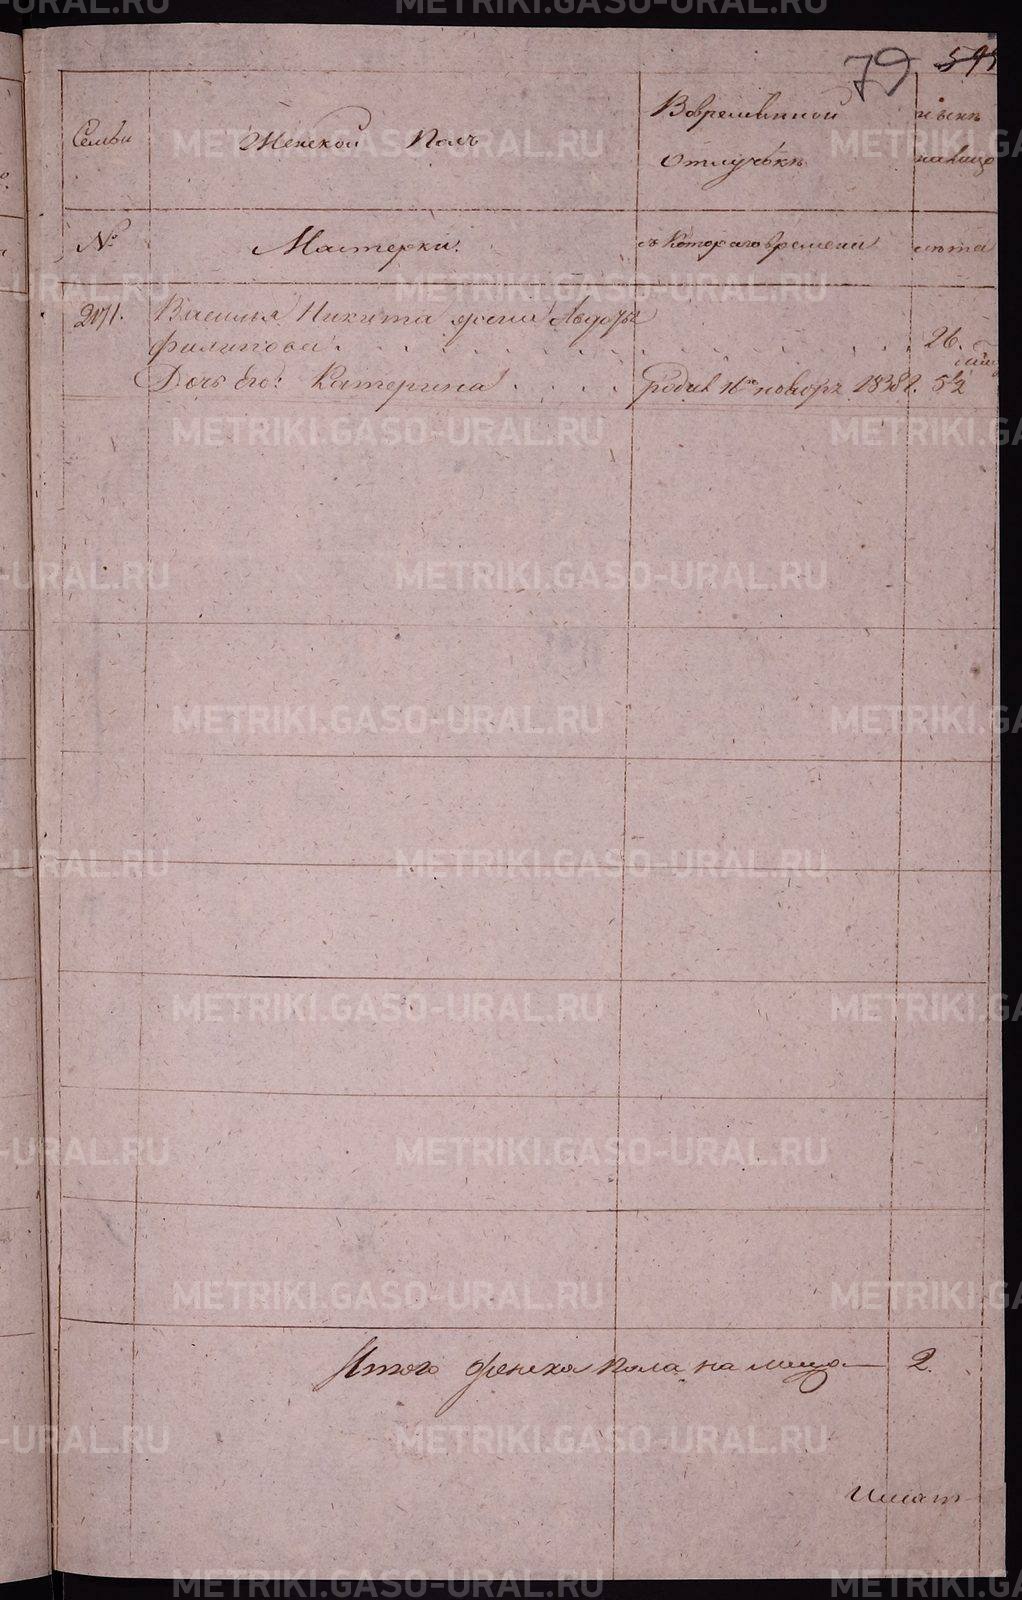 79
Семьи
Женской Полъ
Вовременной
отлучьке
ныне
налицо
№
Мастерки.
съ Котораго времени
лета
2071.
Василья Никита жена Авдотья
филипова
26.
Дочь его: Катерина
родил 16го ноября 1838 г.
5 1/2
Итого женска пола на лицо
2.
METRIKI.GASO-URAL.RU